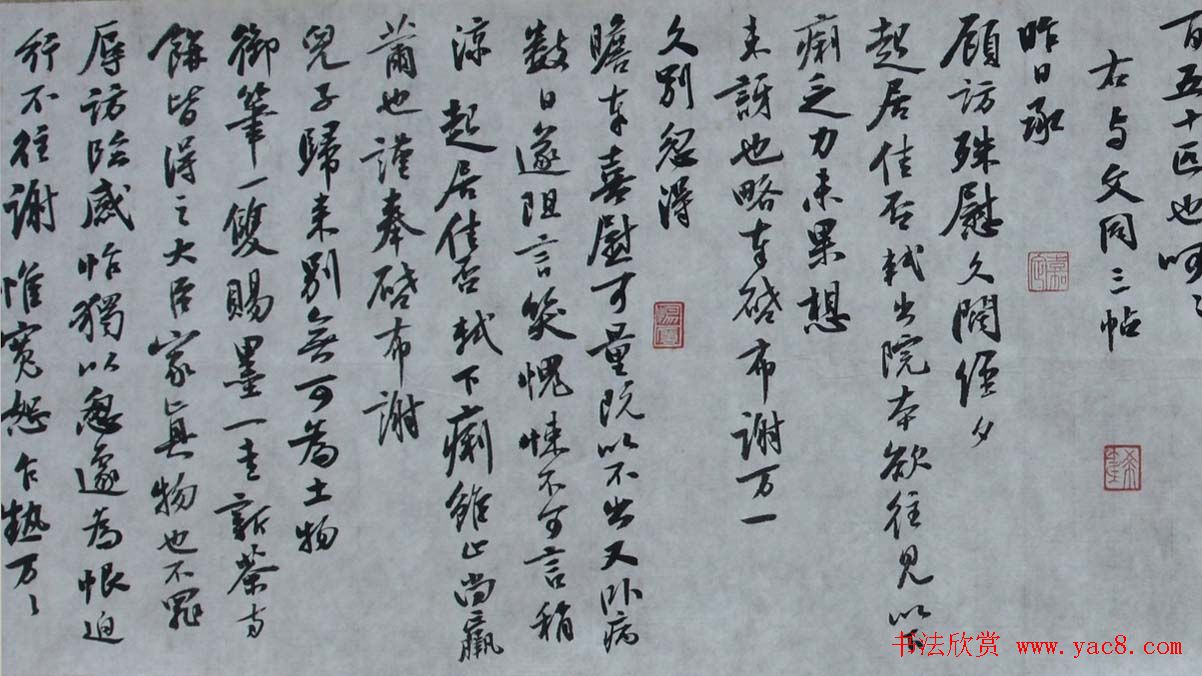 百五十匹也呵呵
右与文同三帖
昨日承
顾访殊慰久阔经夕
起居佳否轼出院本欲往见以下
痢乏力未果想
未讶也略奉启布谢万一
久别忽得
瞻奉喜慰可量既以不出又卧病
数日遂阻言笑愧悚不可言稍
凉 起居佳否轼下痢虽止尚羸
薾也謹奉啓布謝
兒子歸来别無可為土物
御筆一雙賜墨一圭新茶
餅皆得之大臣家真物也不罪
辱訪臨感怍獨以怱遽為恨迫
行不往謝 惟寬恕乍熱万万
书法欣赏 www.yac8.com